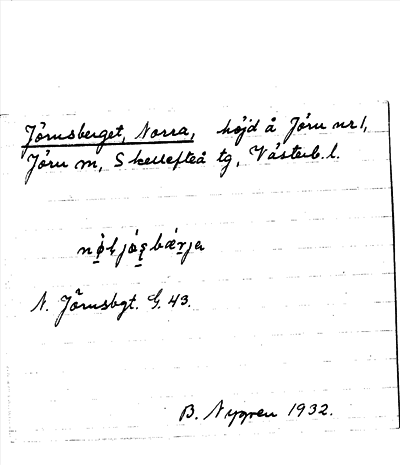 Jörnsberget, Norra, höjd å Jörn nr 1,
Jörn sn, Skellefteå tg, Västerb. l.
N. Jörnsbgt. G. 43.
B. Nygren 1932.